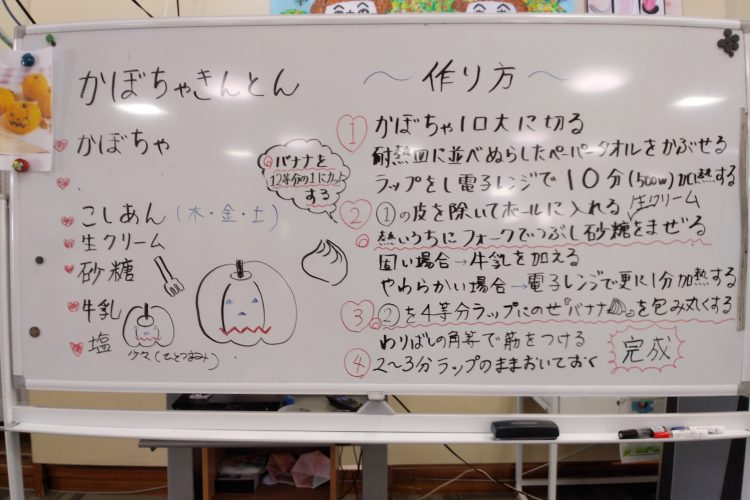 かぼちゃきんとん
かぼちゃ
こしあん(木・金・土)
生クリーム
砂糖
牛乳
塩 少々(ひとつまみ)
バナナを
12等分の1にカット
する
〜作り方〜
① かぼちゃ1口大に切る
耐熱皿に並べぬらしたペーパータオルをかぶせる
ラップをし電子レンジで10分(500w)加熱する
② ①の皮を除いてボールに入れる
生クリーム
熱いうちにフォークでつぶし砂糖をまぜる
固い場合→牛乳を加える
やわらかい場合→電子レンジで更に1分加熱する
③ ②を4等分ラップにのせ『バナナ』を包み丸くする
わりばしの角等で筋をつける
④ 2〜3分ラップのままおいておく
完成